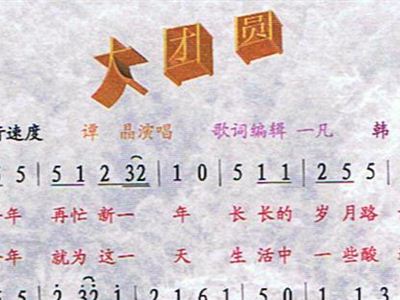 大团圆
速度 谭 晶演唱 歌词编辑 一凡 韩
5 | 5 1 2 32 | 1 0 | 5 1 1 | 2 5 5 |
年 再忙 新一 年 长 长的 岁 月路
年 就为 这一 天 生 活中 一些酸